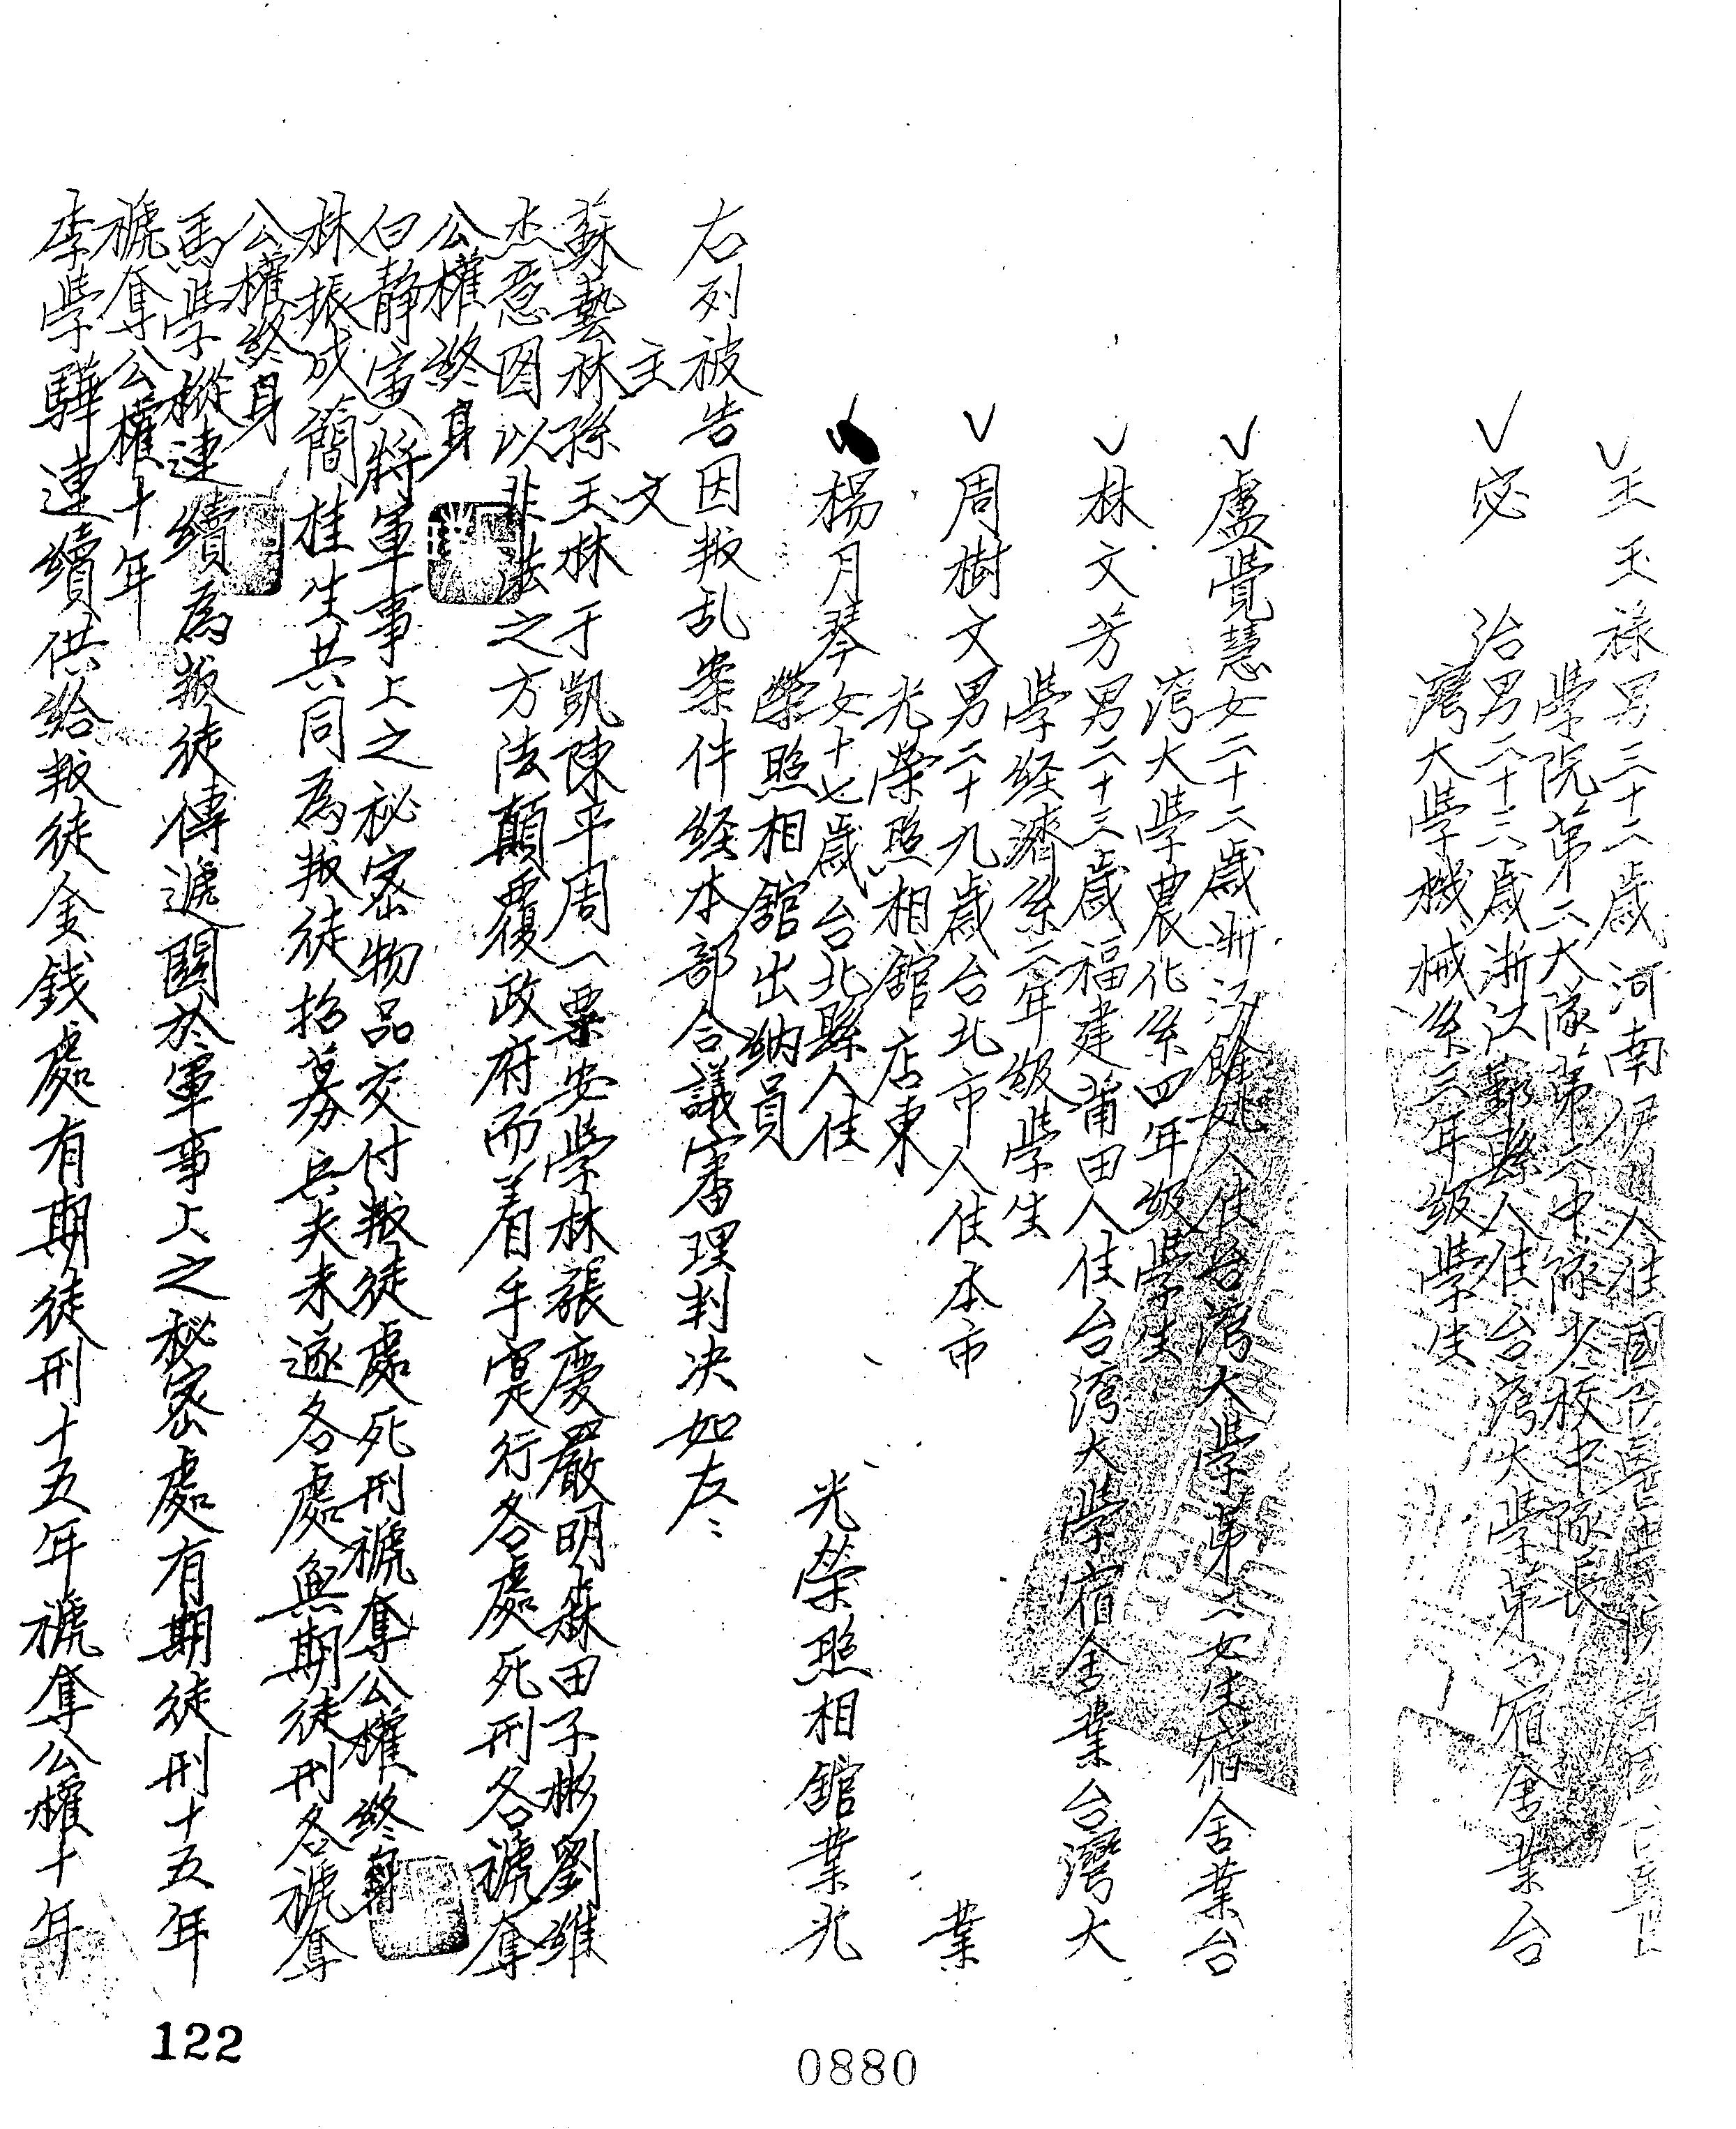 王玉祿男三十二歲河南伊川人住國防醫學院
學院第二大隊第六中隊少校中隊長
宓治男二十六歲浙江鄞縣人住台灣大學第八宿舍業台
灣大學機械系三年級學生
盧覺慧女二十二歲浙江餘姚人住台灣大學第六女生宿舍業台
灣大學農化系四年級學生
林文芳男二十三歲福建莆田人住台灣大學宿舍業台灣大
學経濟系二年級學生
周樹文男二十九歲台北市人住本市業
光榮照相館店東
楊月琴女十七歲台北縣人住光榮照相館業光
榮照相館出納員
右列被告因叛乱案件経本部合議審理判决如左:
主文
蘇藝林孫玉林于凱陳平周一粟安學林張慶嚴明森田子彬劉維
杰意図以非法之方法顛覆政府而着手實行各處死刑各褫奪
公權終身
白静寅將軍事上之祕密物品交付叛徒處死刑褫奪公權終身
林振成簡桂生共同為叛徒招募兵夫未遂各處無期徒刑各褫奪
公權終身
馬學樅連續為叛徒傳遞關於軍事上之秘密處有期徒刑十五年
褫奪公權十年
李學驊連續供給叛徒金錢處有期徒刑十五年褫奪公權十年
122
0880